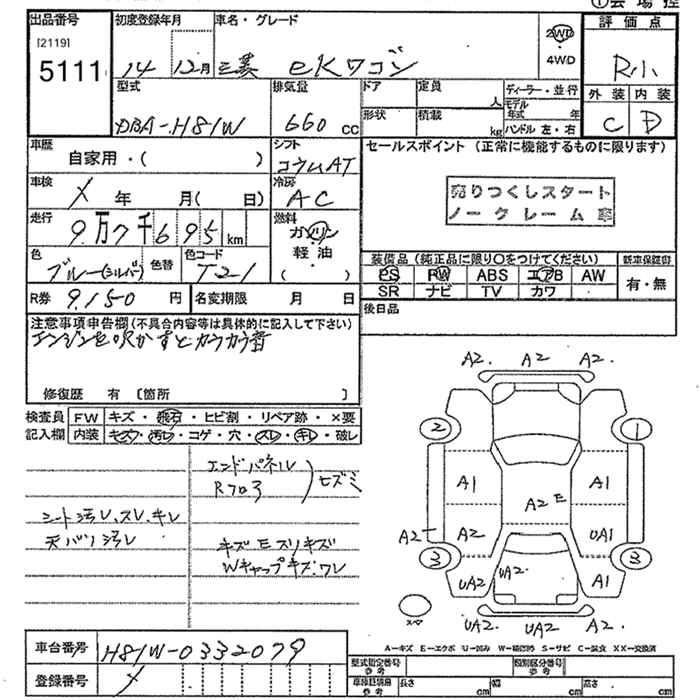 ①会場控
出品番号 初度登録年月 車名・グレード 評価点
[2119]
5111 14 12月 三菱 eKワゴン 2WD・4WD R小
型式 排気量 ドア 定員 人 ディーラー・並行
外装 内装
DBA-H81W 660cc 形状 積載 kg モデル年式 年
ハンドル 左・右
C D
車歴 自家用・( ) シフト コラムAT
セールスポイント (正常に機能するものに限ります)
車検 × 年 月( 日) 冷房 AC
売りつくしスタート
ノークレーム車
走行 9万7千695km 燃料 ガソリン 軽油 ( )
色 ブルー(シルバ) 色替 色コード T21
装備品 (純正品に限り○をつけてください) 新車保証書
PS PW ABS エアB AW 有・無
SR ナビ TV カワ
R券 9,150円 名変期限 月 日
後日品
注意事項申告欄(不具合内容等は具体的に記入して下さい)
エンジンを吹かすとカラカラ音
修復歴 有 〔箇所 〕
検査員 FW キズ・飛石・ヒビ割・リペア跡・×要
記入欄 内装 キズ・汚レ・コゲ・穴・スレ・キレ・破レ
エンドパネル
Rフロア
ヒズミ
シート汚レ、スレ、キレ
天バリ汚レ
キズ エスリキズ
Wキャップキズ、ワレ
A2. A2 A2.
② ①
A1 A1
A2 E
A2 A2 UA1
③ ③
UA2 UA2 A1
スペ
UA2 UA2 A2.
A−キズ E−エクボ U−凹み W−補修跡 S−サビ C−腐食 XX−交換済
車台番号 H81W-0332079
登録番号 ×
型式指定番号 参考 類別区分番号 参考
車検証記載 参考 長さ cm 幅 cm 高さ cm